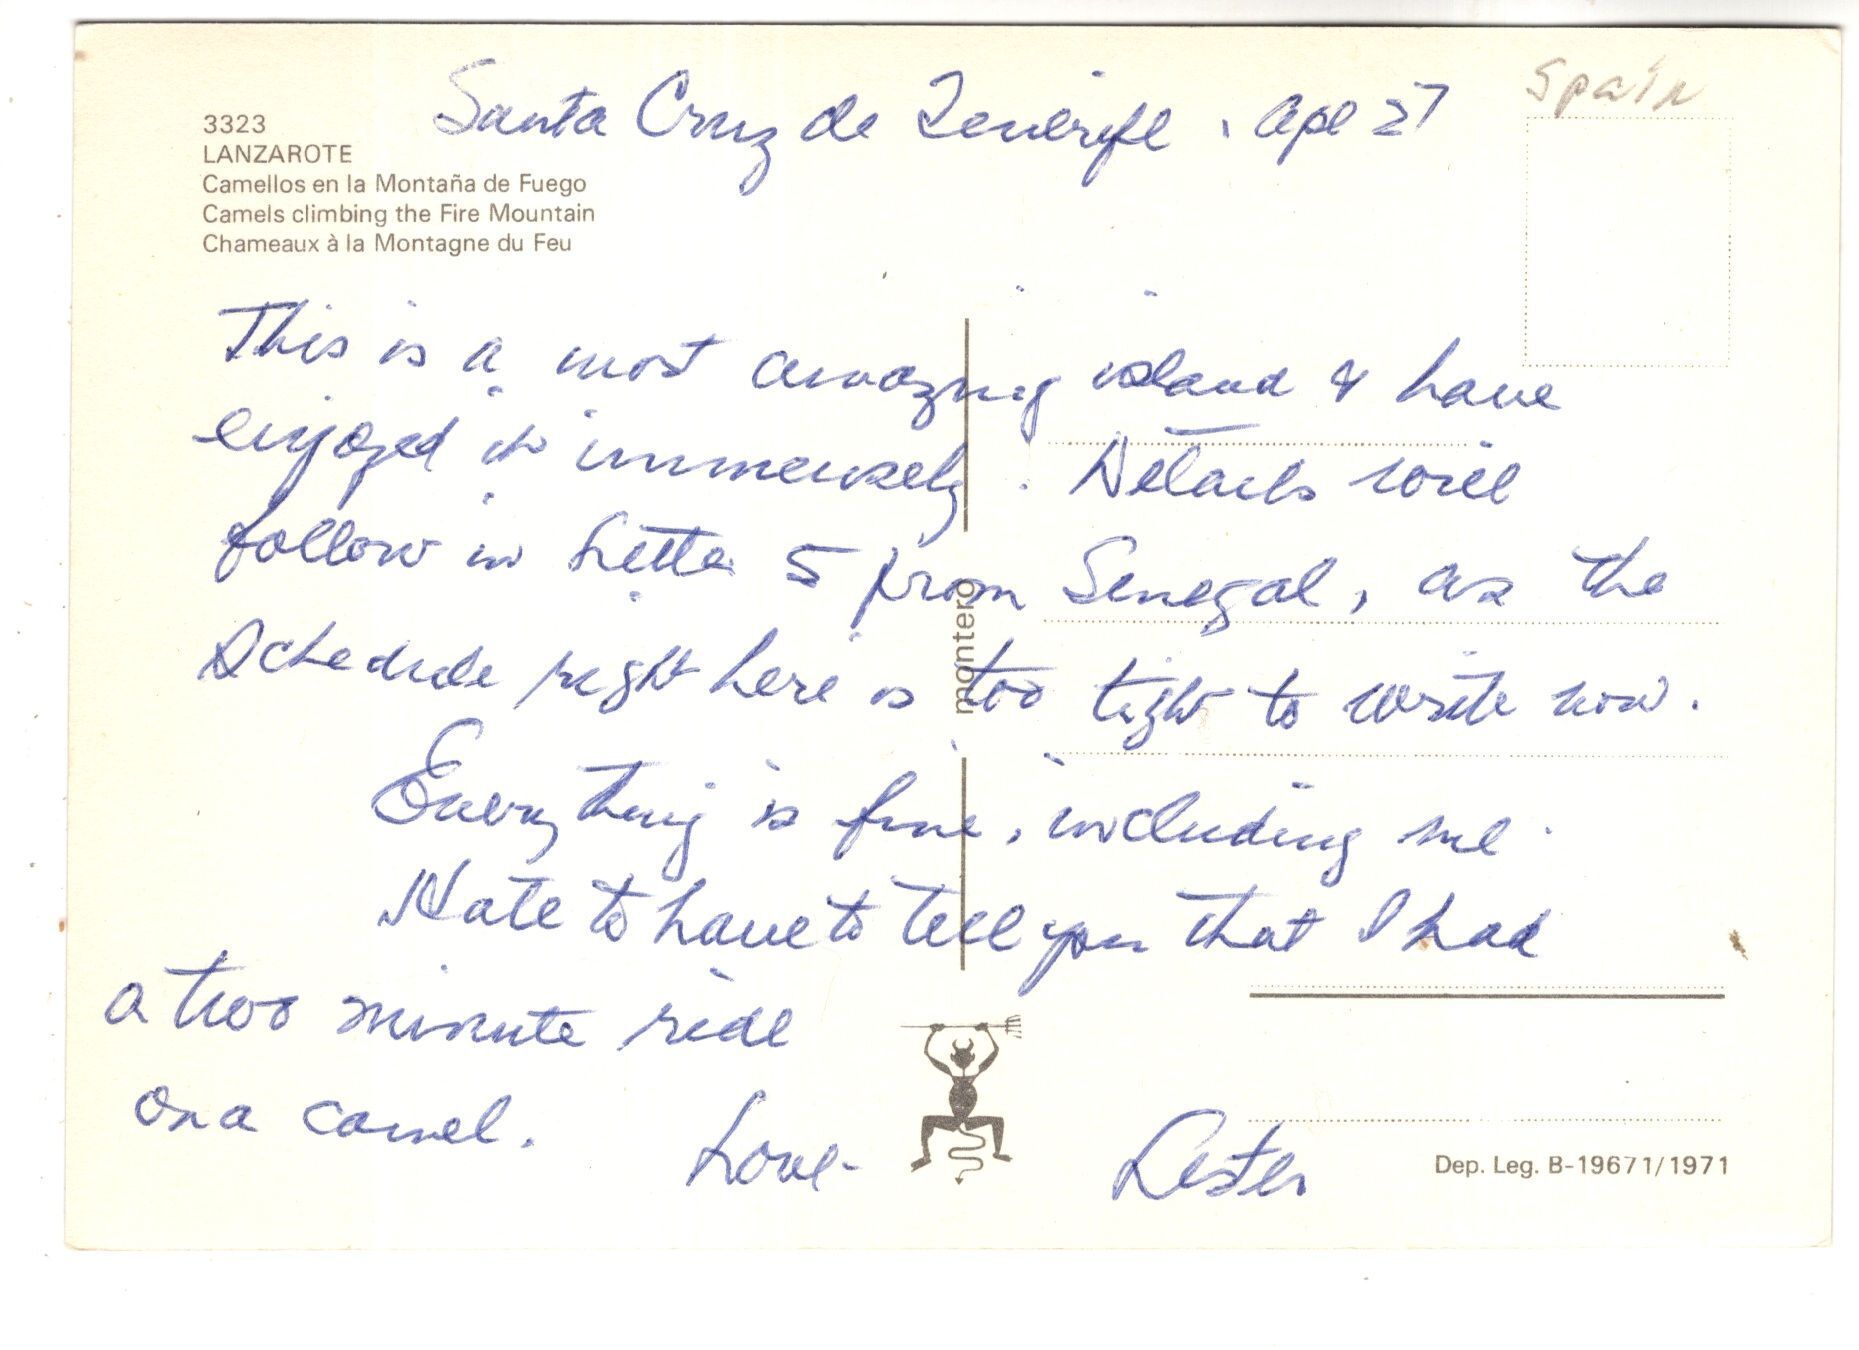 Spain
Santa Cruz de Tenerife. Apl 27
3323
LANZAROTE
Camellos en la Montaña de Fuego
Camels climbing the Fire Mountain
Chameaux à la Montagne du Feu
This is a most amazing island & have
enjoyed it immensely. Details will
follow in Letter 5 from Senegal, as the
Schedule right here is too tight to write now.
Everything is fine, including me.
Hate to have to tell you that I had
a two minute ride
on a camel.
Love - Lester
montero
Dep. Leg. B-19671/1971